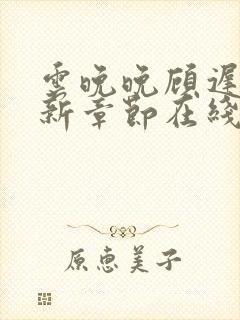 雲晚晚顾遲
新章節在綫
原惠美子